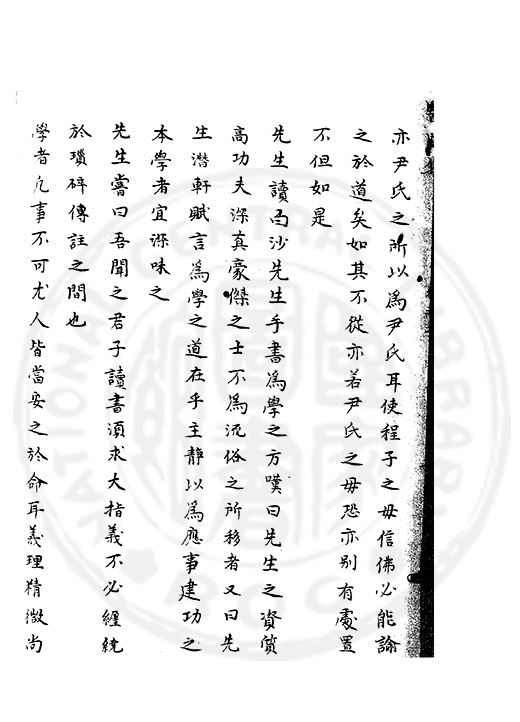 亦尹氏之所以爲尹氏耳使程子之毋信佛必能諭
之於道矣如其不從亦若尹氏之毋恐亦别有處置
不但如是
先生讀白沙先生手書爲學之方嘆曰先生之資質
高功夫深真豪傑之士不爲流俗之所移者又曰先
生潛軒賦言爲學之道在乎主静以爲應事建功之
本學者宜深味之
先生嘗曰吾聞之君子讀書須求大指義不必纏繞
於瑣碎傳註之間也
學者凡事不可尤人皆當安之於命耳義理精微尚